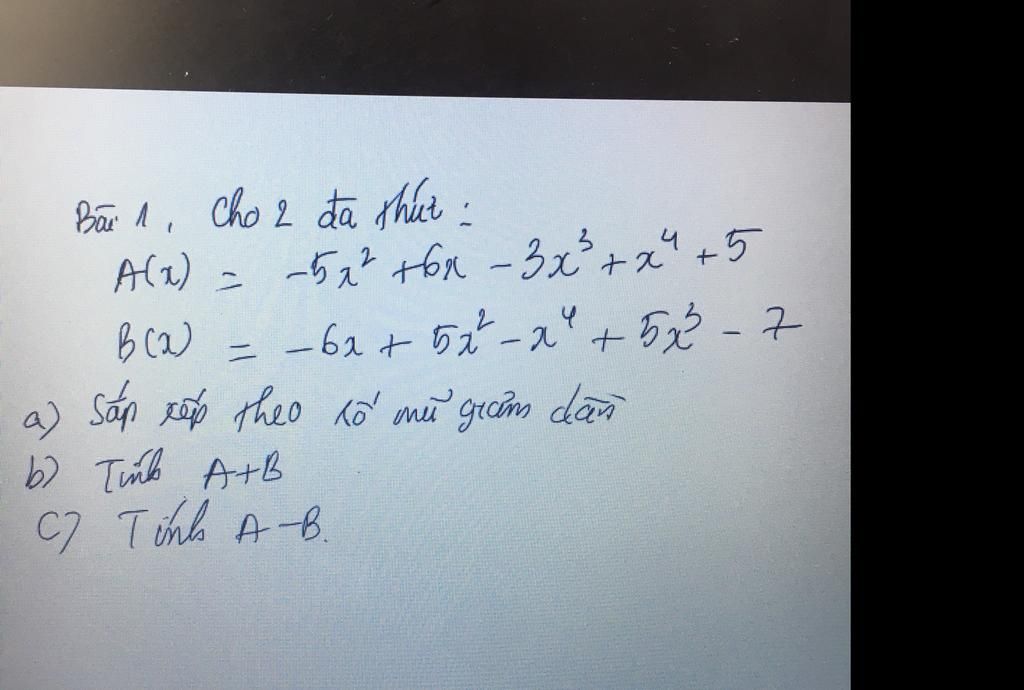 Bài 1, Cho 2 đa thức:
A(x) = -5x² + 6x - 3x³ + x⁴ + 5
B(x) = -6x + 5x² - x⁴ + 5x³ - 7
a) Sắp xếp theo số mũ giảm dần
b) Tính A+B
c) Tính A-B.